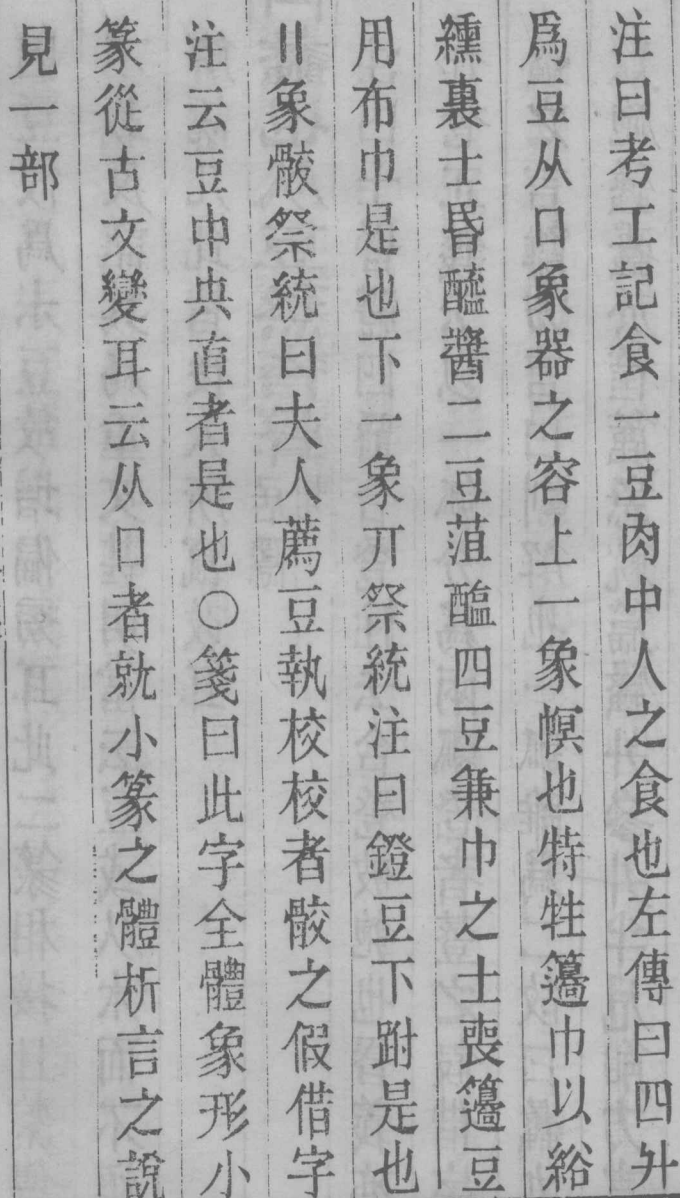 注曰考工記食一豆肉中人之食也左傳曰四升
爲豆从口象器之容上一象幎也特牲籩巾以綌
纁裏士昏醯醬二豆菹醢四豆兼巾之士喪籩豆
用布巾是也下一象丌祭統注曰鐙豆下跗是也
〢象骹祭統曰夫人薦豆執校校者骹之假借字
注云豆中央直者是也○箋曰此字全體象形小
篆從古文變耳云从口者就小篆之體析言之說
見一部